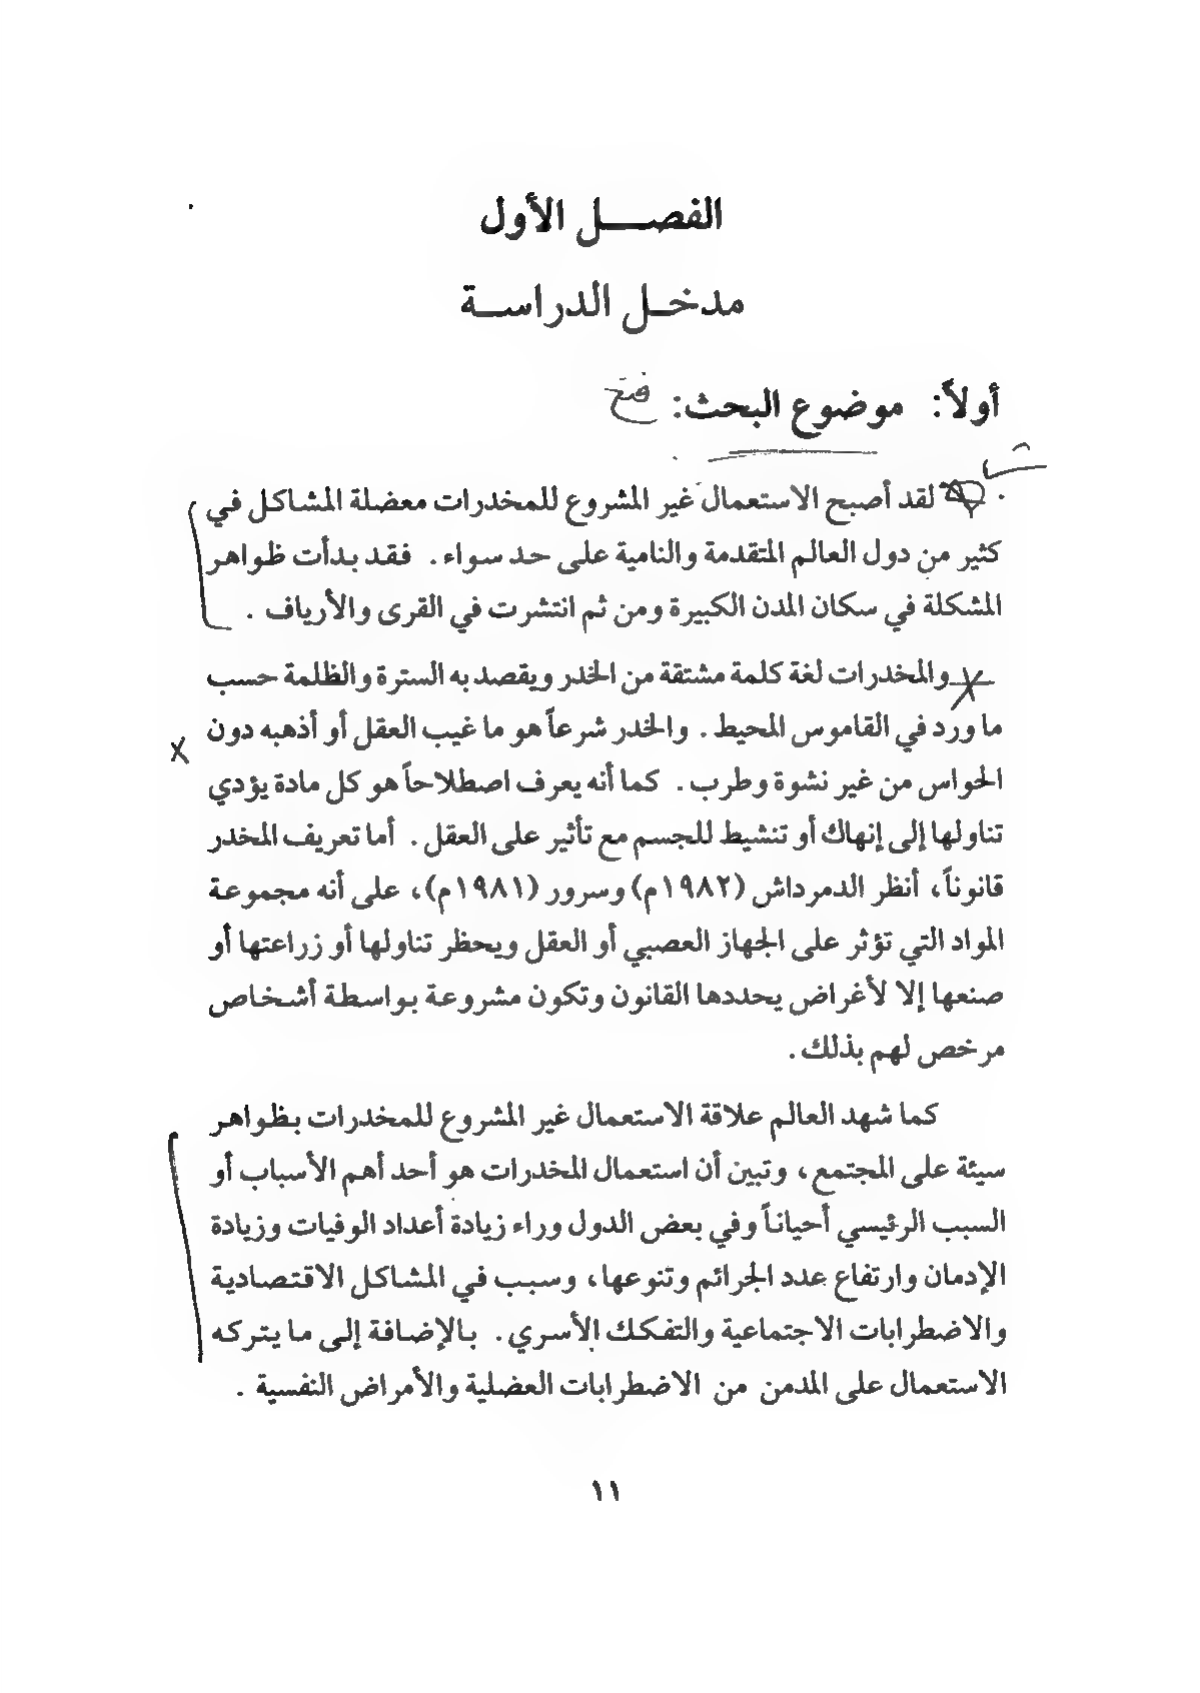 الفصل الأول
مدخل الدراسة
أولاً: موضوع البحث:
لقد أصبح الاستعمال غير المشروع للمخدرات معضلة المشاكل في
كثير من دول العالم المتقدمة والنامية على حد سواء. فقد بدأت ظواهر
المشكلة في سكان المدن الكبيرة ومن ثم انتشرت في القرى والأرياف.
والمخدرات لغة كلمة مشتقة من الخدر ويقصد به السترة والظلمة حسب
ما ورد في القاموس المحيط. والخدر شرعاً هو ما غيب العقل أو أذهبه دون
الحواس من غير نشوة وطرب. كما أنه يعرف اصطلاحاً هو كل مادة يؤدي
تناولها إلى إنهاك أو تنشيط للجسم مع تأثير على العقل. أما تعريف المخدر
قانوناً، أنظر الدمرداش (١٩٨٢م) وسرور (١٩٨١م)، على أنه مجموعة
المواد التي تؤثر على الجهاز العصبي أو العقل ويحظر تناولها أو زراعتها أو
صنعها إلا لأغراض يحددها القانون وتكون مشروعة بواسطة أشخاص
مرخص لهم بذلك.
كما شهد العالم علاقة الاستعمال غير المشروع للمخدرات بظواهر
سيئة على المجتمع، وتبين أن استعمال المخدرات هو أحد أهم الأسباب أو
السبب الرئيسي أحياناً وفي بعض الدول وراء زيادة أعداد الوفيات وزيادة
الإدمان وارتفاع عدد الجرائم وتنوعها، وسبب في المشاكل الاقتصادية
والاضطرابات الاجتماعية والتفكك الأسري. بالإضافة إلى ما يتركه
الاستعمال على المدمن من الاضطرابات العضلية والأمراض النفسية.
١١